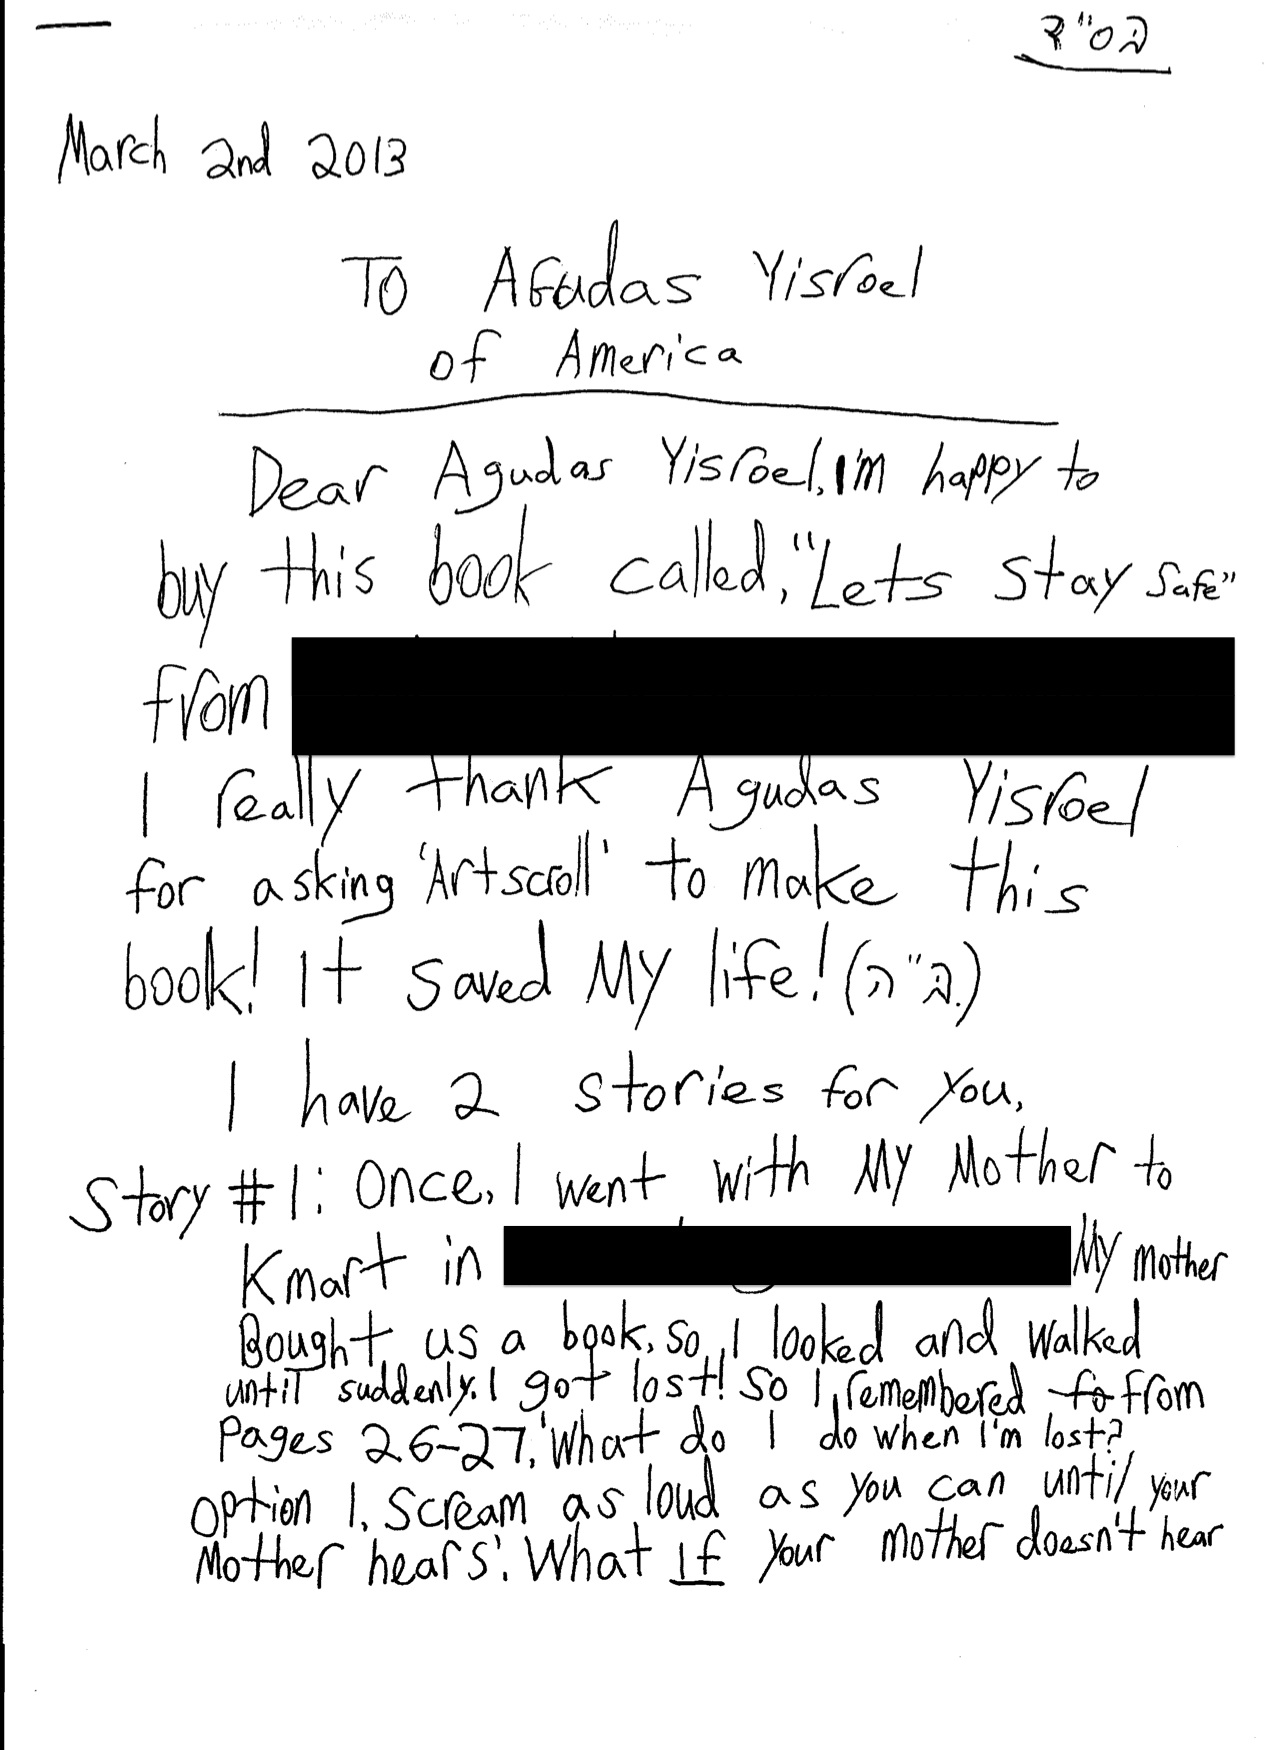 בס"ד
March 2nd 2013
To Agudas Yisroel
of America
Dear Agudas Yisroel, I'm happy to
buy this book called, "Lets Stay Safe"
from
I really thank Agudas Yisroel
for asking 'Artscroll' to make this
book! It saved My life! (ב"ה.)
I have 2 stories for you,
Story #1: Once, I went with My Mother to
Kmart in My mother
Bought us a book, so, I looked and walked
until suddenly. I got lost! So I, remembered fo from
Pages 26-27, 'What do I do when I'm lost?
option 1. Scream as loud as you can until your
Mother hears'. What If your mother doesn't hear